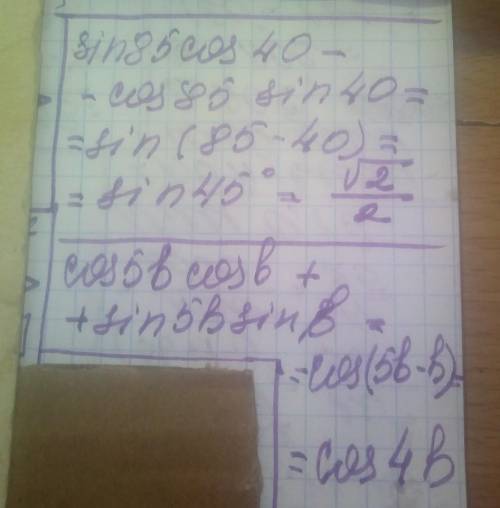 sin85cos40 -
- cos85 sin40 =
= sin(85-40) =
= sin45° = √2/2
cos5b cosb +
+ sin5b sin b =
= cos(5b-b) =
= cos4b